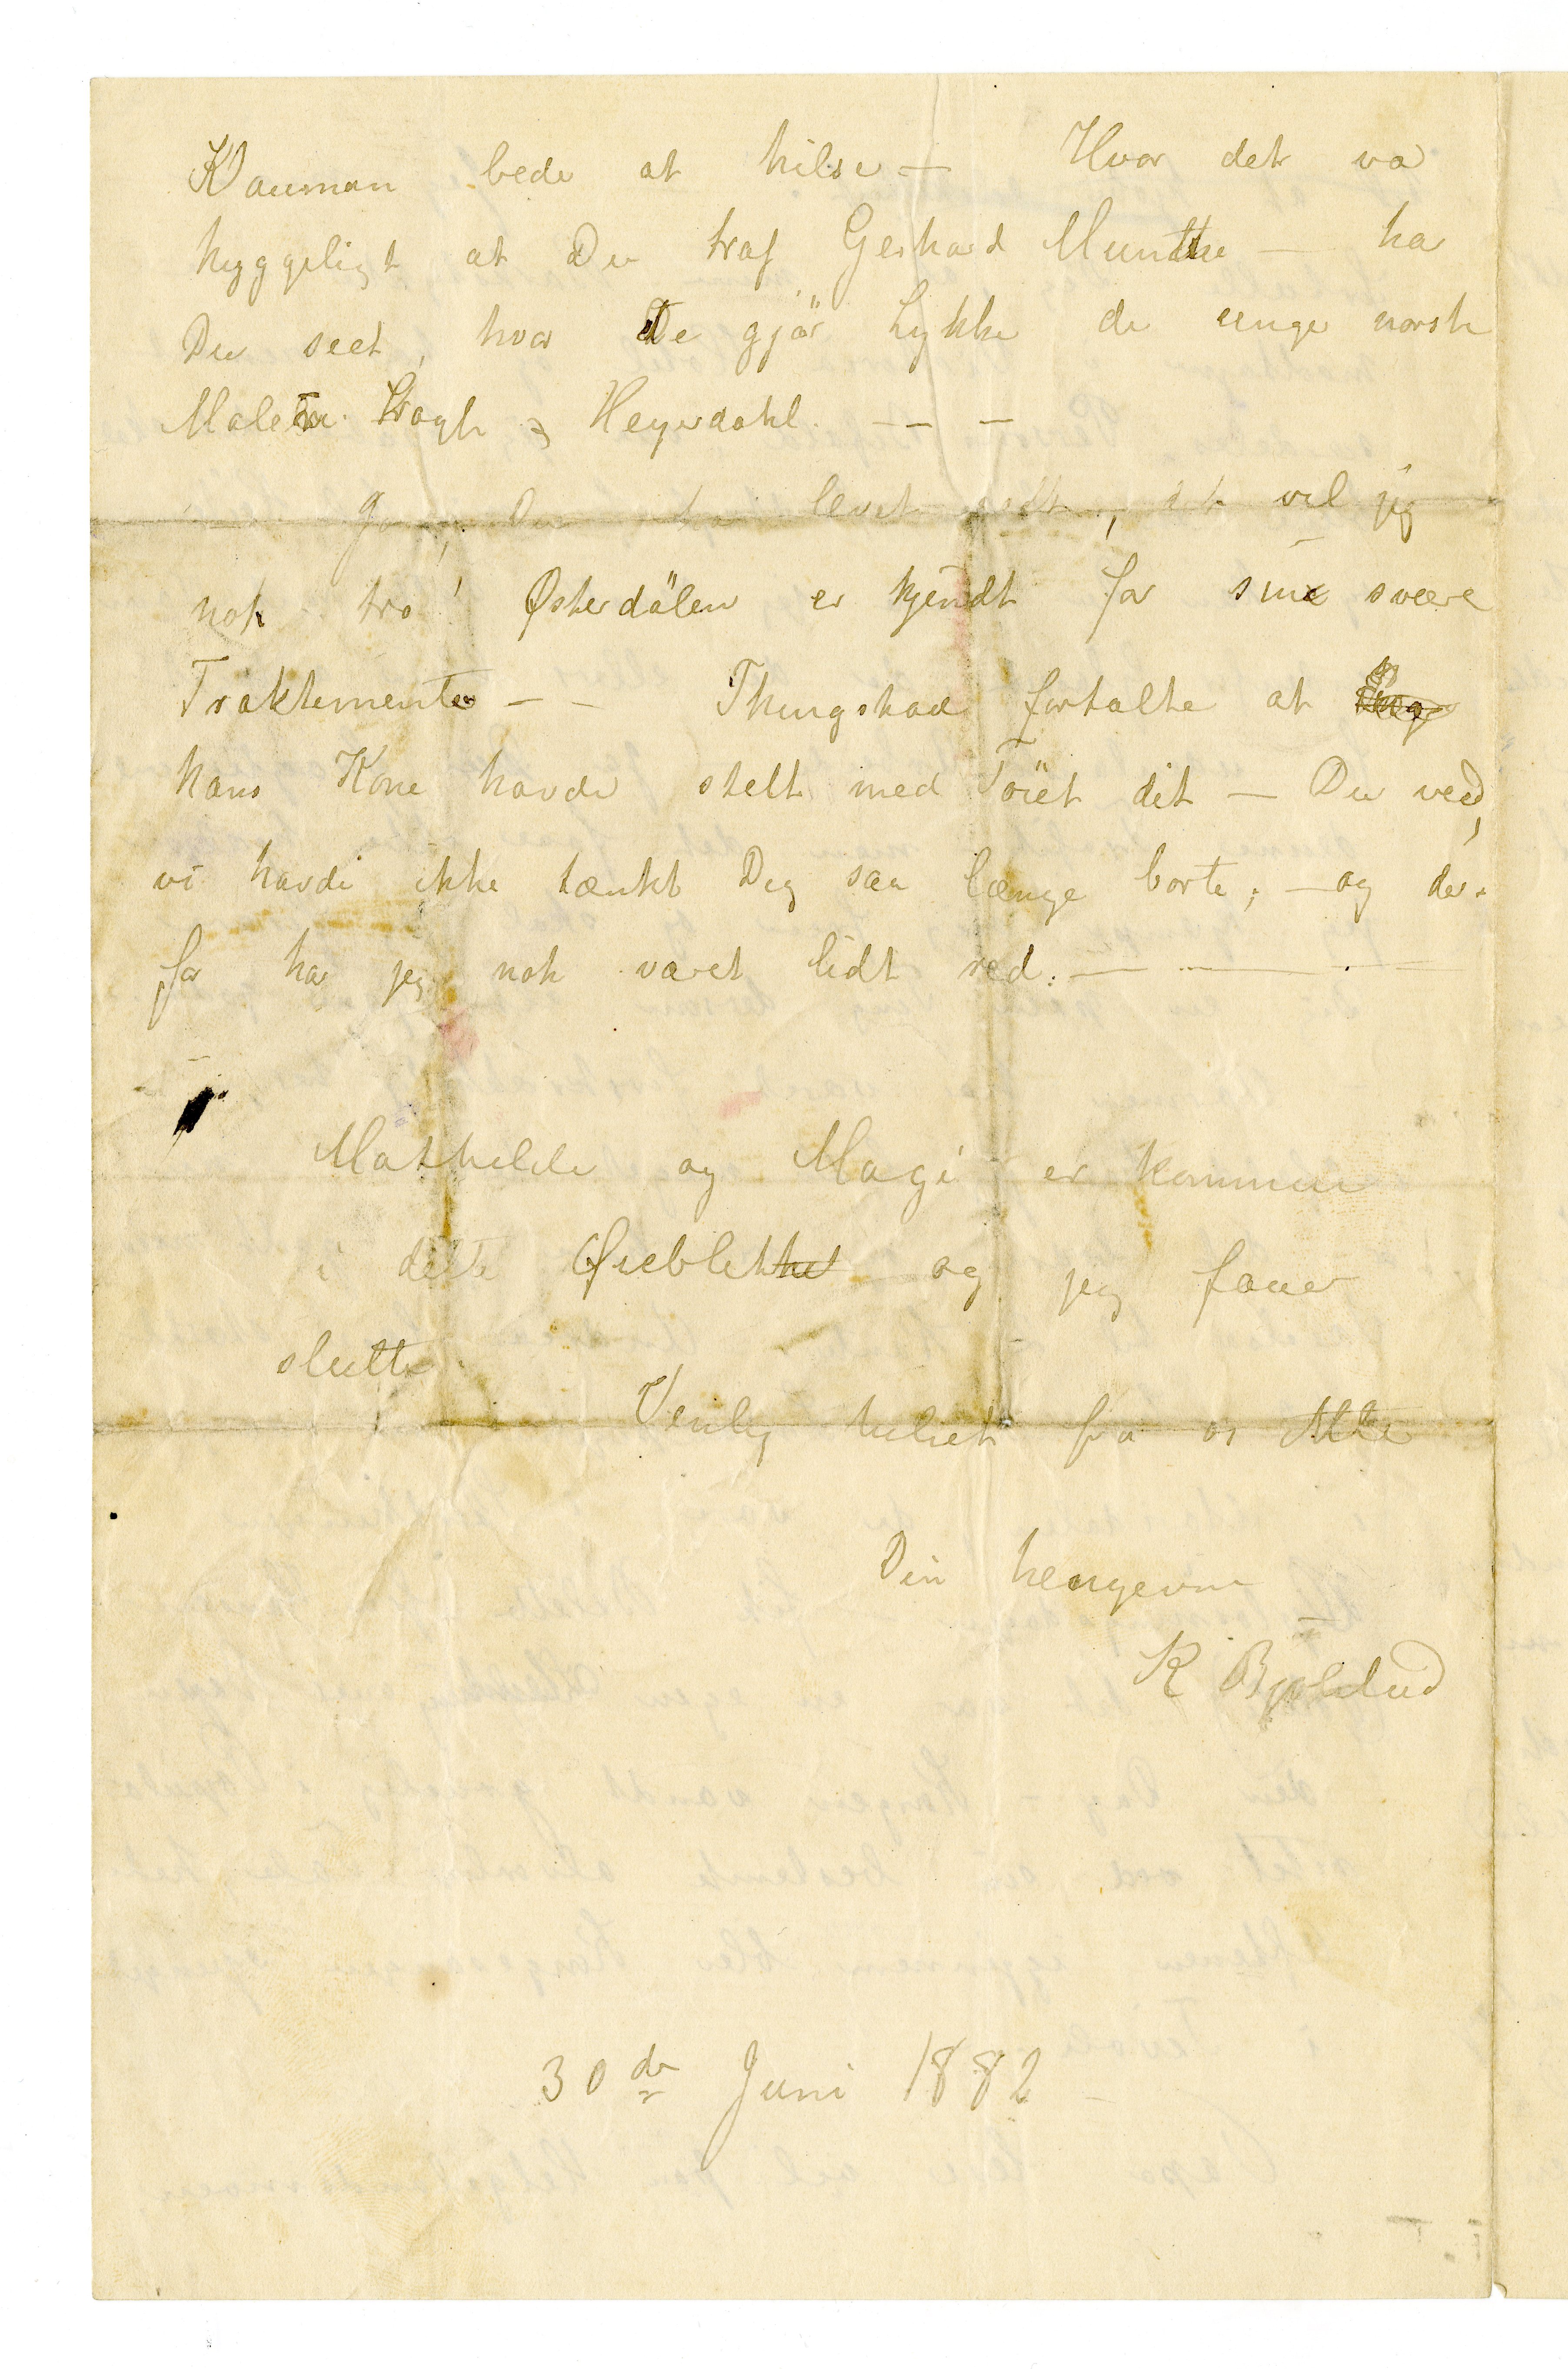 Klauman beder at hilse — Hvor det va
hyggeligt at Du traf Gerhard Munthe — har
Du seet, hvor De gjör Lykke de unge norske
Malere Krogh og Heyerdahl. — — —
Ja, Du har levet godt, det vil jeg
nok tro! Østerdälen er kjendt for sine svære
Traktementer — — Thingstad fortalte at
hans Kone havde stelt med Töiet dit — Du veed,
vi havde ikke tænkt Dig saa længe borte; — og der-
for har jeg nok været lidt ræd. — — —
Mathilde og Magi er kommen
i dette Øieblikket og jeg faaer
slutte
Venlig hilset fra os Alle
Din hengivne
K Bjølstad
30de Juni 1882 —